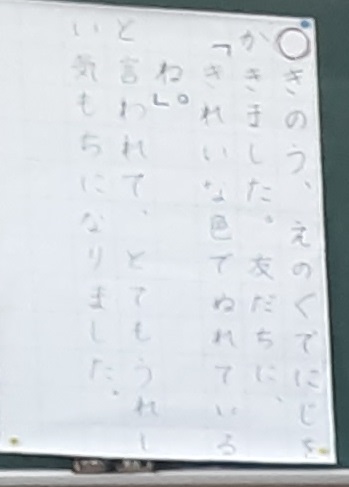 きのう、えのぐでにじを
かきました。友だちに、
「きれいな色でぬれている
ね」。
と言われて、とてもうれし
い気もちになりました。